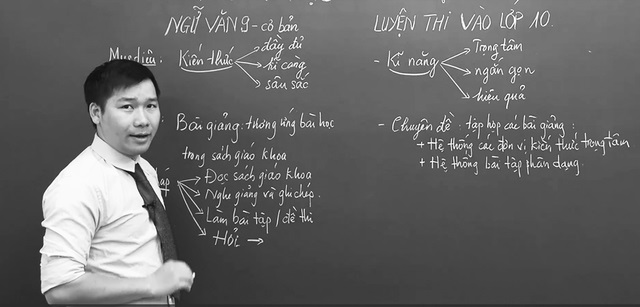 NGỮ VĂN 9 - cơ bản
Mục tiêu: Kiến thức
đầy đủ
kĩ càng
sâu sắc
Bài giảng: tương ứng bài học
trong sách giáo khoa
Đọc sách giáo khoa
Nghe giảng và ghi chép.
Làm bài tập / đề thi
Hỏi →
LUYỆN THI VÀO LỚP 10.
- Kĩ năng
Trọng tâm
ngắn gọn
hiệu quả
- Chuyên đề: tập hợp các bài giảng:
+ Hệ thống các đơn vị kiến thức trọng tâm
+ Hệ thống bài tập phân dạng.